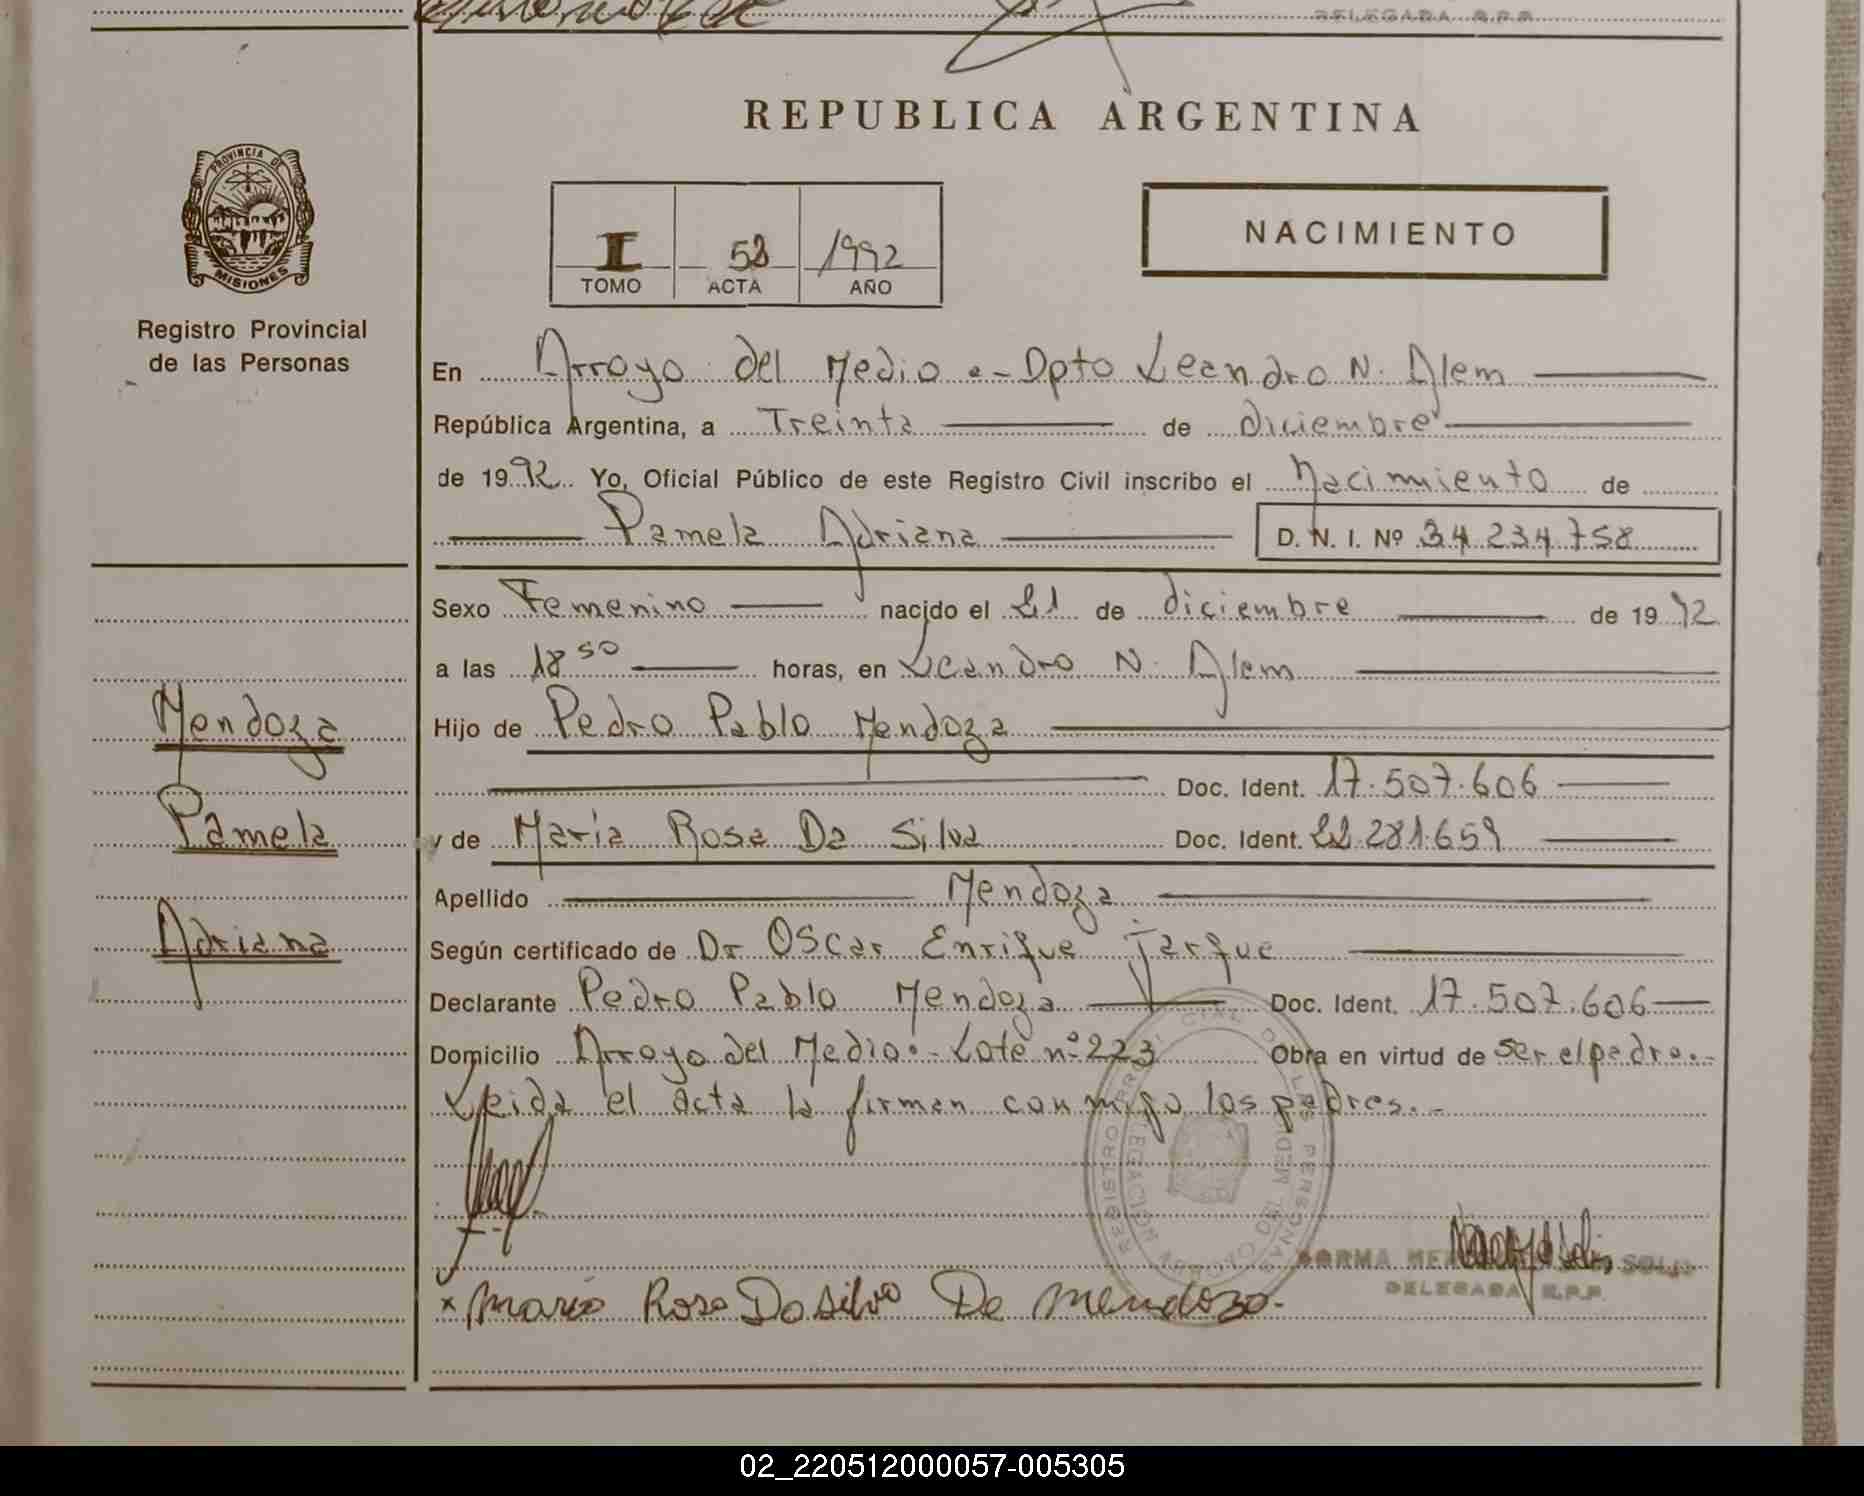 DELEGADA R.P.P.
REPUBLICA ARGENTINA
PROVINCIA DE
MISIONES
Registro Provincial
de las Personas
I 58 1992
TOMO ACTA AÑO
NACIMIENTO
En Arroyo del Medio.- Dpto Leandro N. Alem
República Argentina, a Treinta de diciembre
de 1992 Yo, Oficial Público de este Registro Civil inscribo el Nacimiento de
Pamela Adriana D. N. I. Nº 34 234 758
Sexo Femenino nacido el 21 de diciembre de 1992
a las 18 50 horas, en Leandro N. Alem
Hijo de Pedro Pablo Mendoza
Doc. Ident. 17.507.606
y de María Rosa Da Silva Doc. Ident. 22.281.659
Apellido Mendoza
Según certificado de Dr Oscar Enrique Jarque
Declarante Pedro Pablo Mendoza Doc. Ident. 17.507.606
Domicilio Arroyo del Medio.- Lote nº 223 Obra en virtud de ser el padre.-
Leida el acta la firman conmigo los padres.-
Mendoza
Pamela
Adriana
REGISTRO PROVINCIAL DE LAS PERSONAS
DELEGACION ARROYO DEL MEDIO
NORMA SOLIS
DELEGADA R.P.P.
x Maria Rosa Da Silva De Mendoza.-
02_220512000057-005305